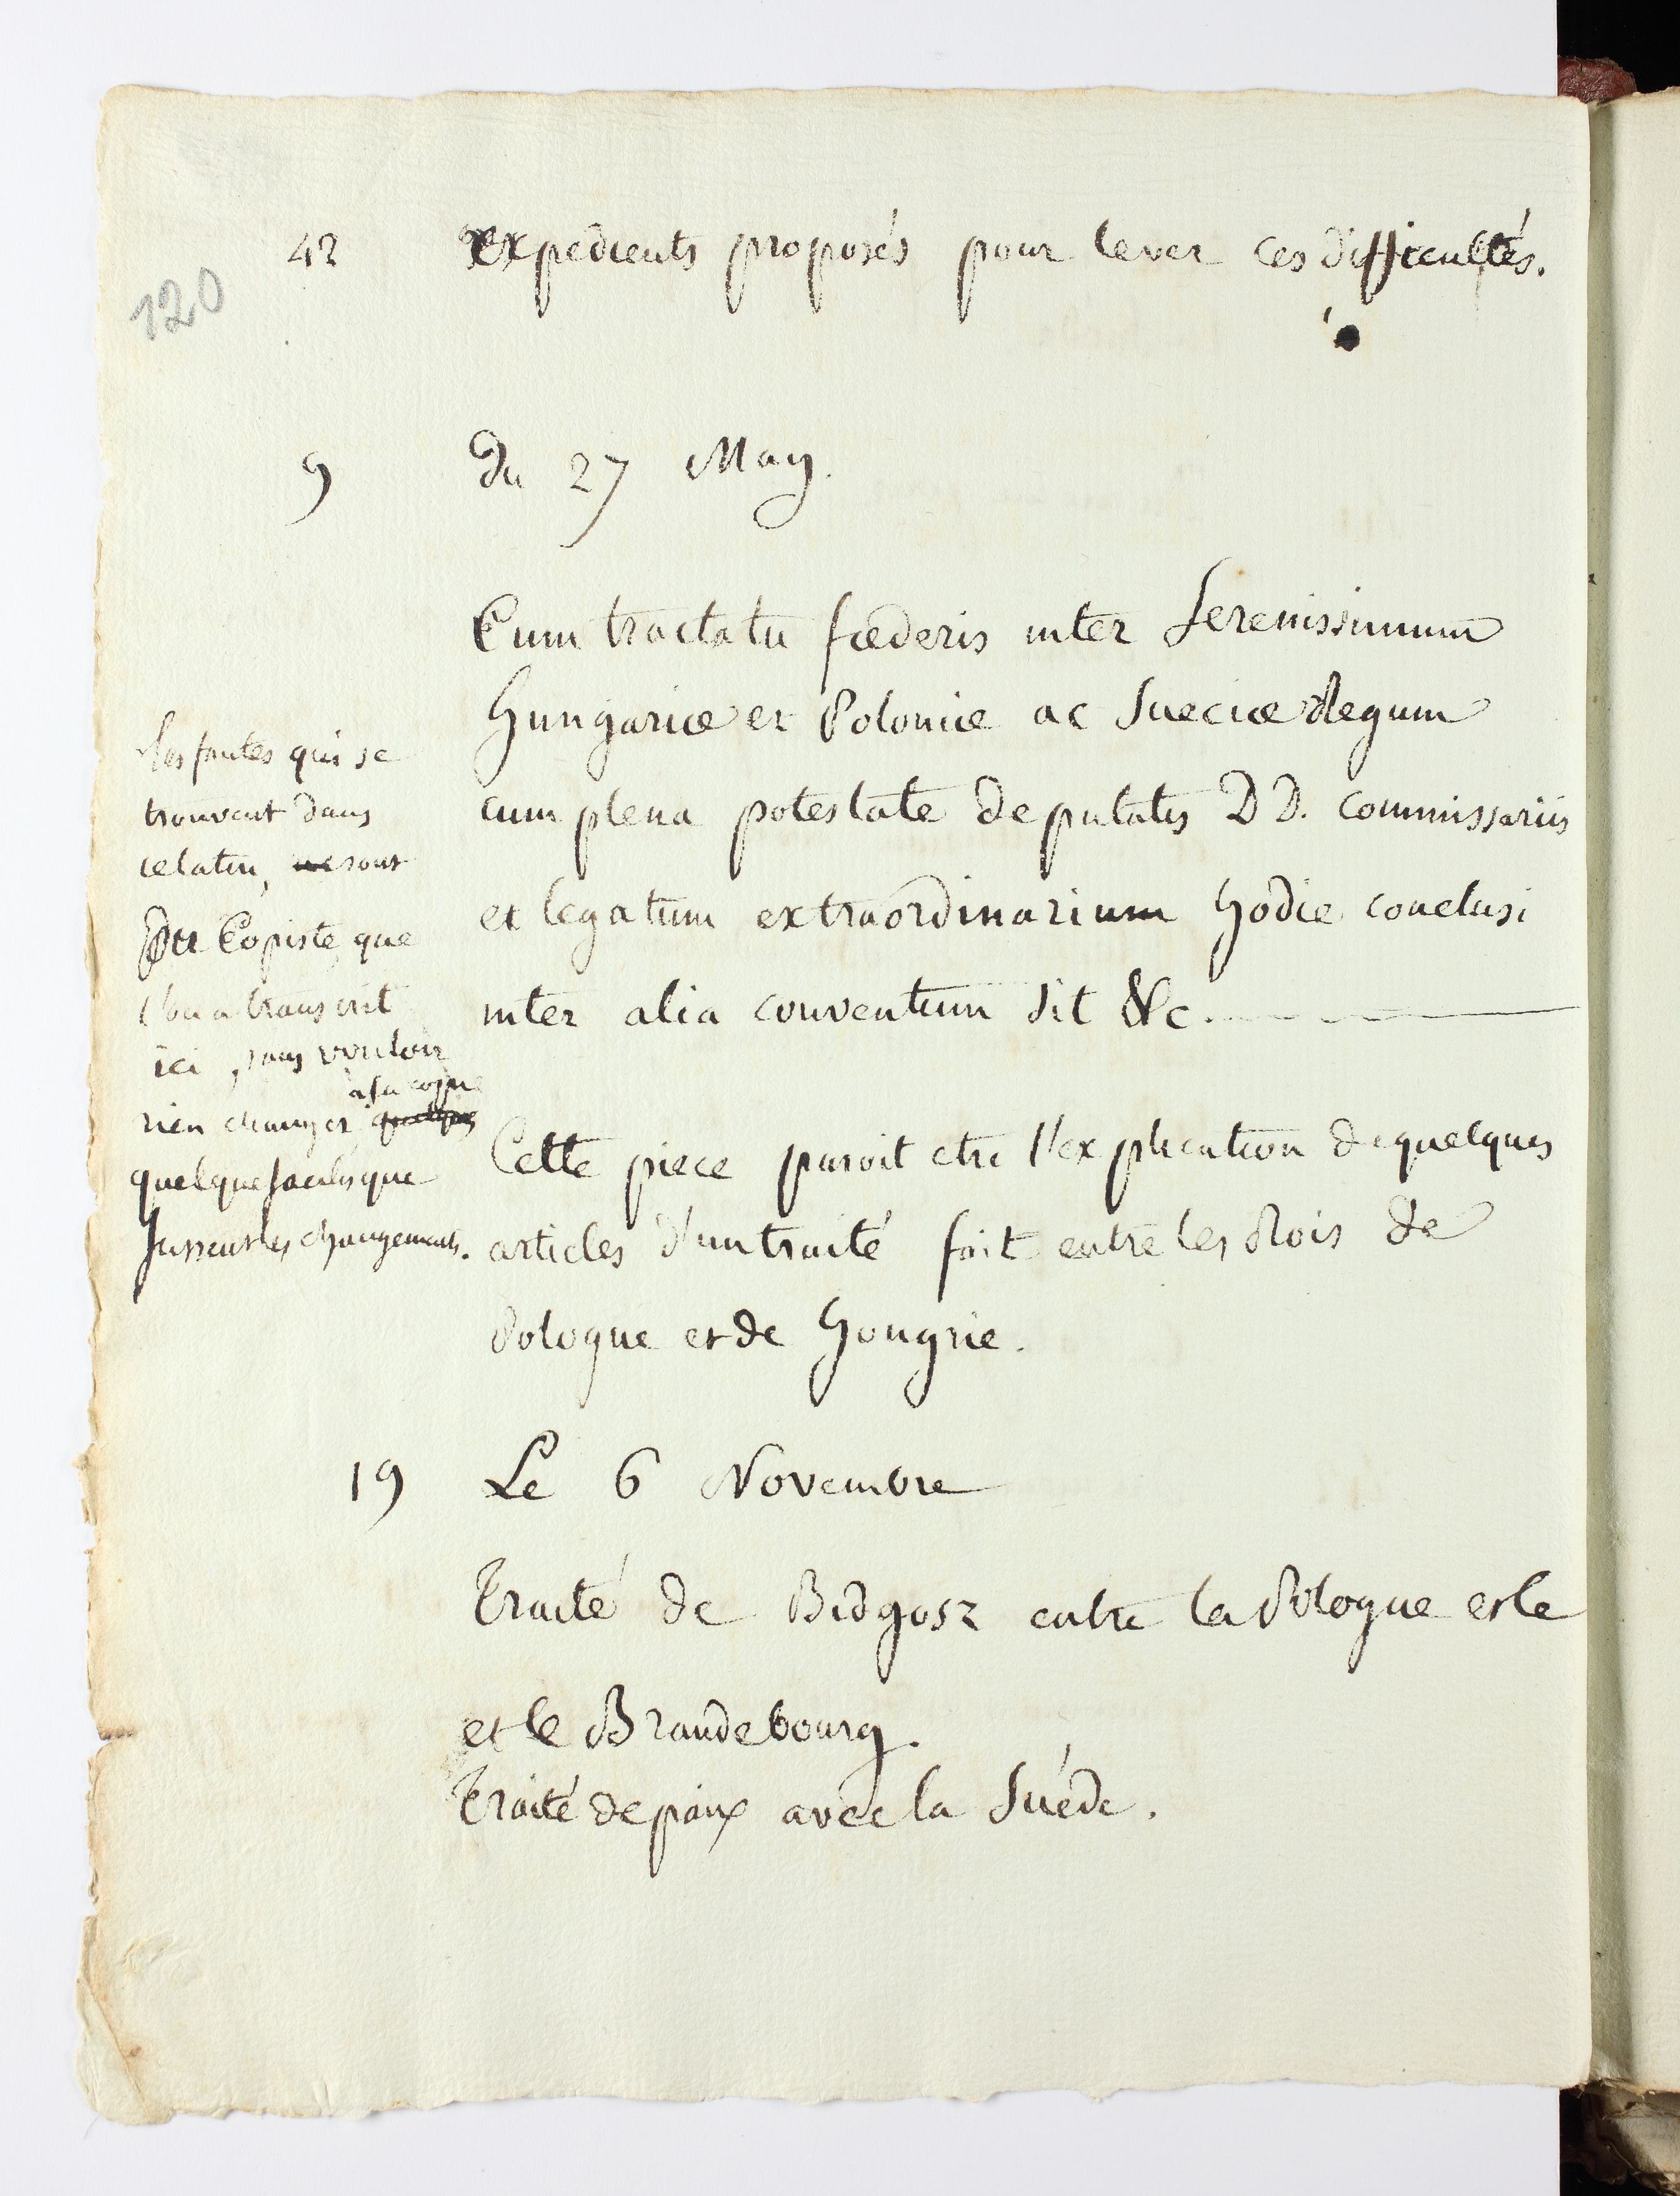 42 expedients proposés pour lever ces difficultés.
120
9 Du 27 May.
Cum tractatu fœderis inter Serenissimum
Hungariæ et Poloniæ ac Sueciæ Regum
cum plena potestate deputatis DD. commissariis
et legatum extraordinarium hodie conclusi
inter alia conventum sit &c.
Les fautes qui se
trouvent dans
ce latin, ne sont
Du Copiste, que
l'on a transcrit
ici, sans vouloir
à sa copie
rien changer quelques
quelque faciles que
fussent les changements.
Cette piece paroit etre l'explication de quelques
articles d'un traité fait entre les Rois de
Pologne et de Hongrie.
19 Le 6 Novembre
Traité de Bidgosz entre la Pologne et le
et le Brandebourg.
Traité de paix avec la Suéde.